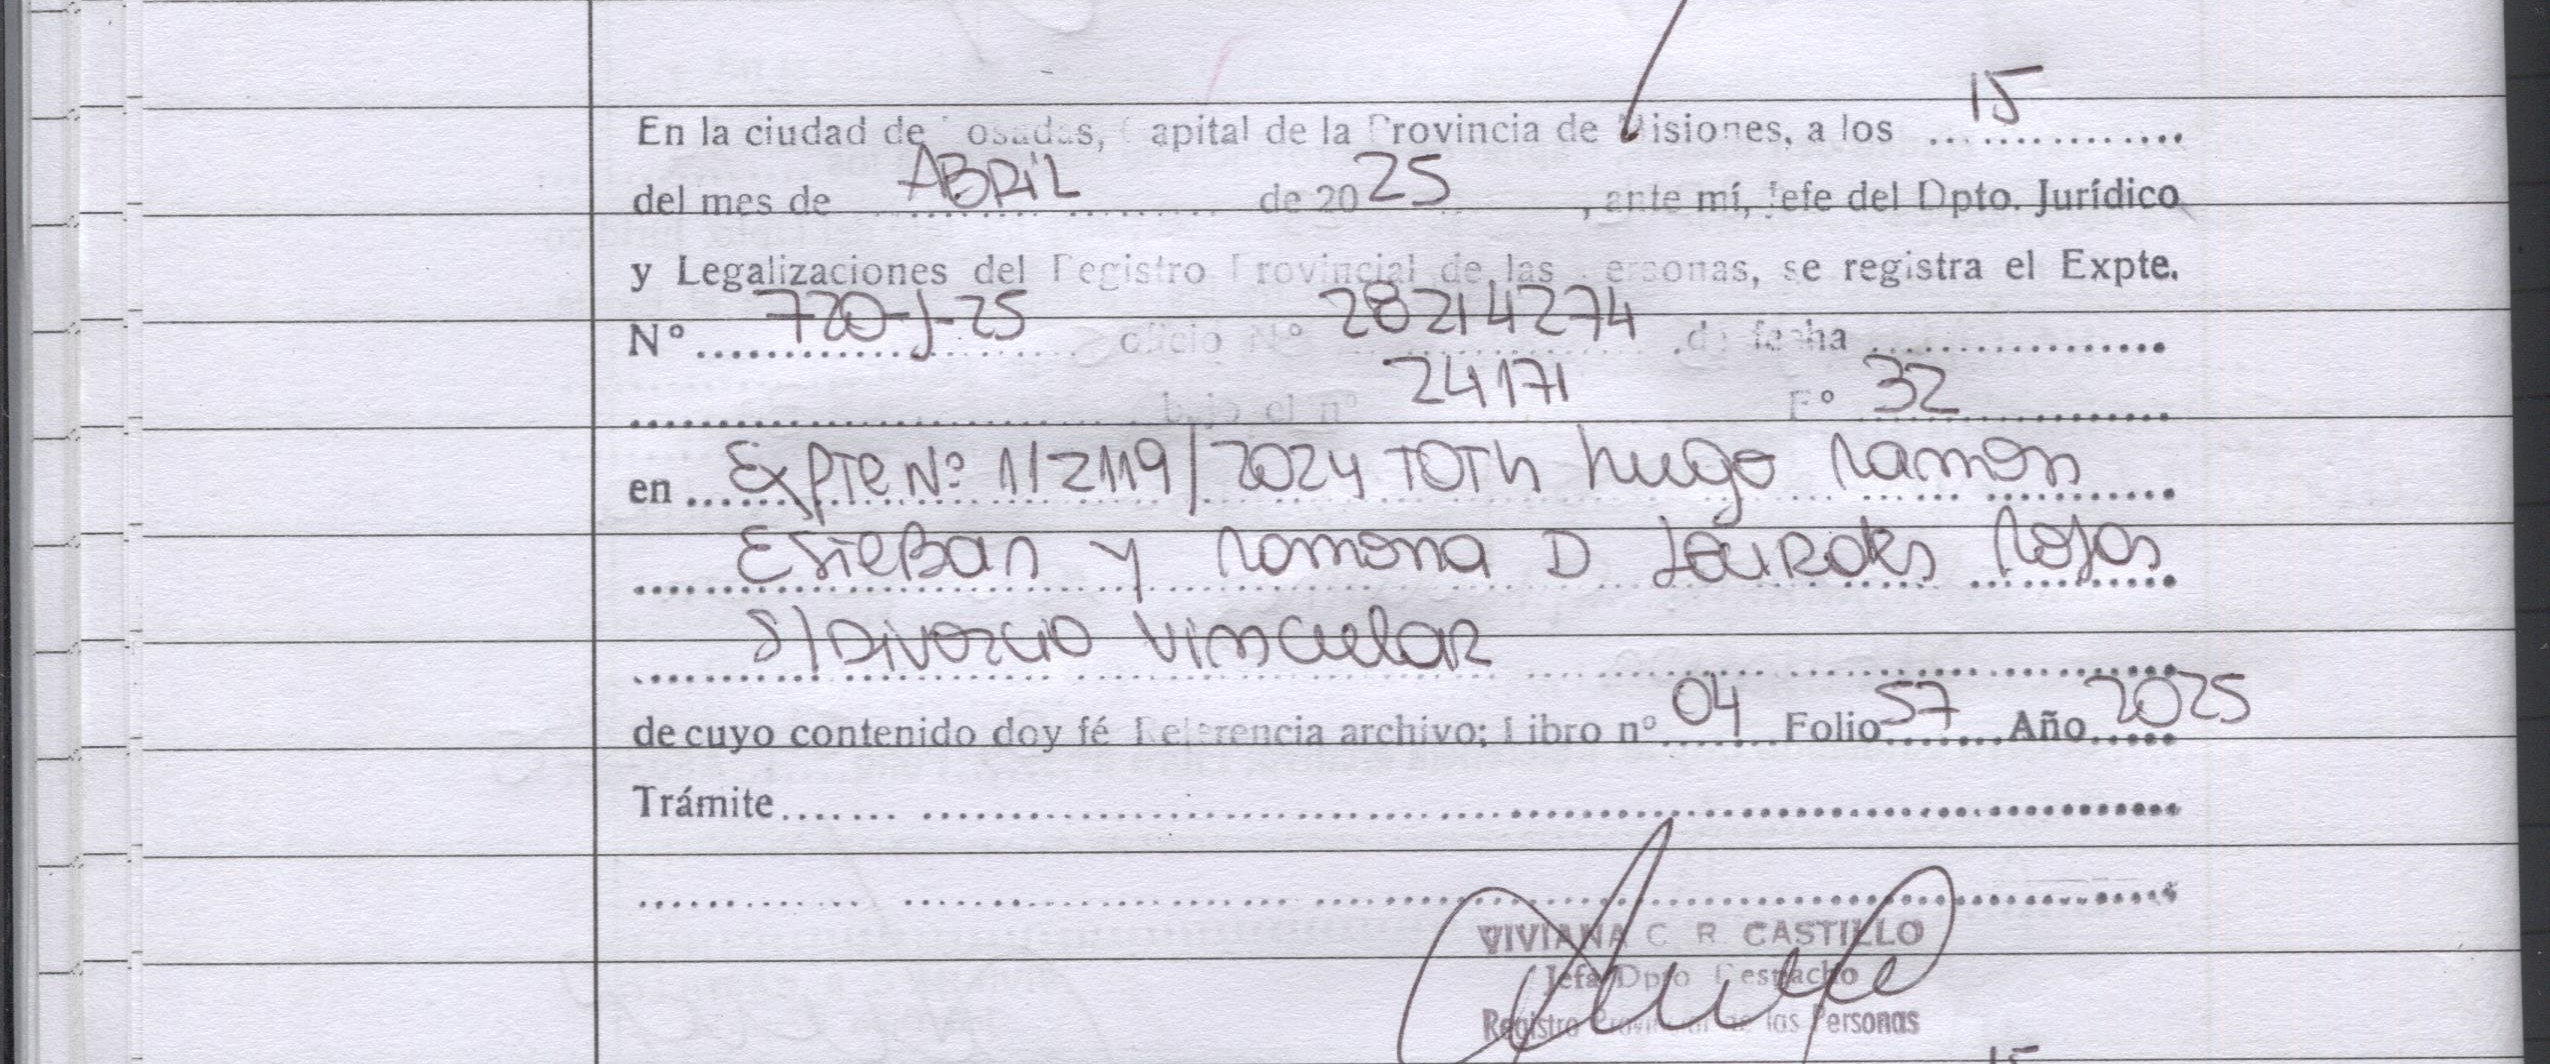 En la ciudad de Posadas, Capital de la Provincia de Misiones, a los ... 15 ...
del mes de ABRIL de 2025, ante mí, Jefe del Dpto. Jurídico
y Legalizaciones del Registro Provincial de las Personas, se registra el Expte.
Nº 720-J-25 oficio Nº 28214274 de fecha
bajo el nº 24171 Fº 32
en Expte Nº 112119/2024 TOTh hugo Ramon
Esteban y Ramona D Lourdes Rojas
S/Divorcio Vincular
de cuyo contenido doy fé Referencia archivo: Libro nº 04 Folio 57 Año 2025
Trámite
VIVIANA C. R. CASTILLO
Jefa Dpto Despacho
Registro Provincial de las Personas
15